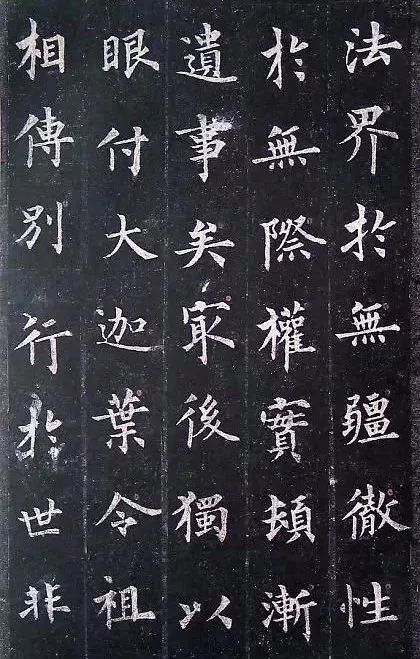 法界於無疆徹性
於無際權實頓漸
遺事矣冣後獨以
眼付大迦葉令祖
相傳別行於世非